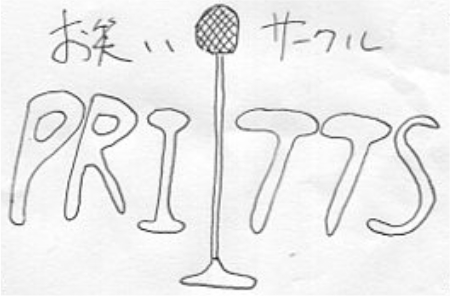 お笑い サークル
PRITTS